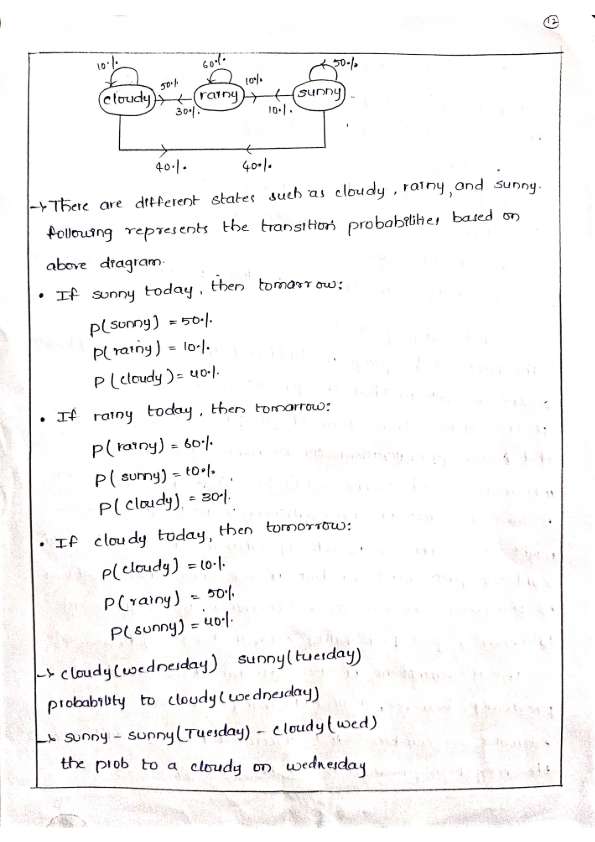 12
10% 60% 50%
50% 10%
cloudy rainy sunny
30% 10%
40% 40%
→ There are different states such as cloudy, rainy, and sunny.
following represents the transition probabilities based on
above diagram.
• If sunny today, then tomorrow:
P(sunny) = 50%
P(rainy) = 10%
P(cloudy) = 40%
• If rainy today, then tomorrow:
P(rainy) = 60%
P(sunny) = 10%
P(cloudy) = 30%
• If cloudy today, then tomorrow:
P(cloudy) = 10%
P(rainy) = 50%
P(sunny) = 40%
→ cloudy(wednesday) sunny(tuesday)
probability to cloudy(wednesday)
→ sunny - sunny(Tuesday) - cloudy(wed)
the prob to a cloudy on wednesday